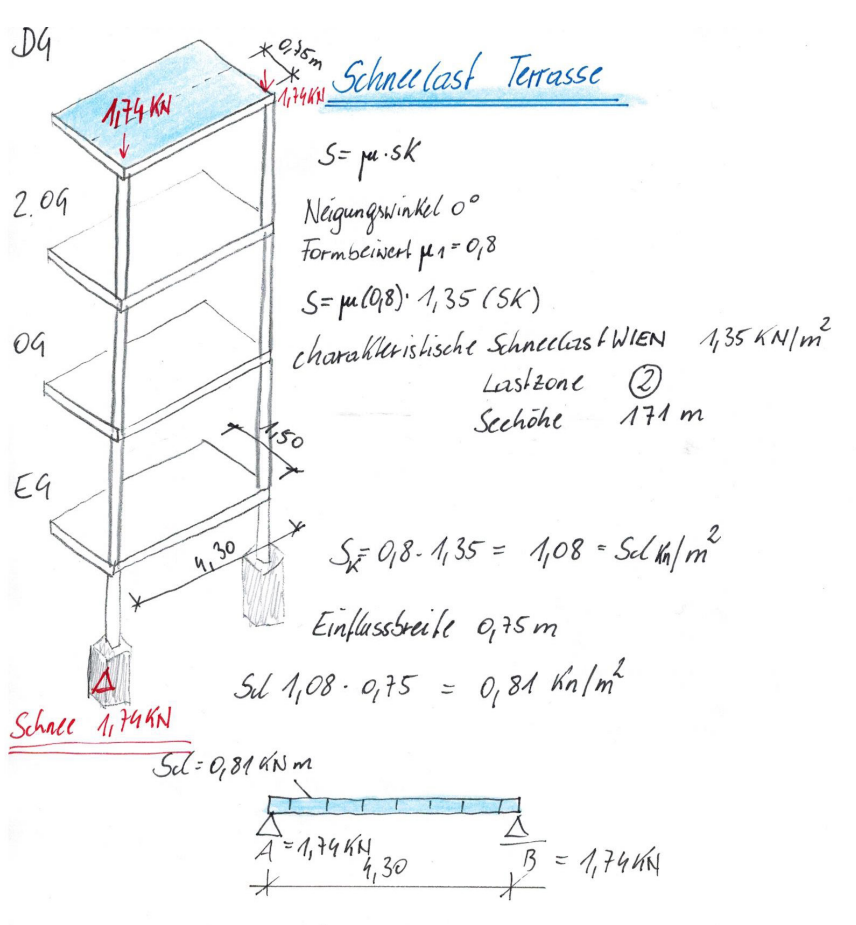 DG
0,75m
Schneelast Terrasse
1,74 KN
1,74KN
S= µ·SK
2.OG
Neigungswinkel 0°
Formbeiwert µ1=0,8
S= µ(0,8)· 1,35 (SK)
OG
charakteristische Schneelast WIEN 1,35 KN/m²
Lastzone ②
Seehöhe 171 m
1,50
EG
4,30
SK= 0,8· 1,35 = 1,08 = Sd Kn/m²
Einflussbreite 0,75m
Sd 1,08 · 0,75 = 0,81 Kn/m²
Schnee 1,74KN
Sd=0,81 KNm
A =1,74KN
B = 1,74KN
4,30